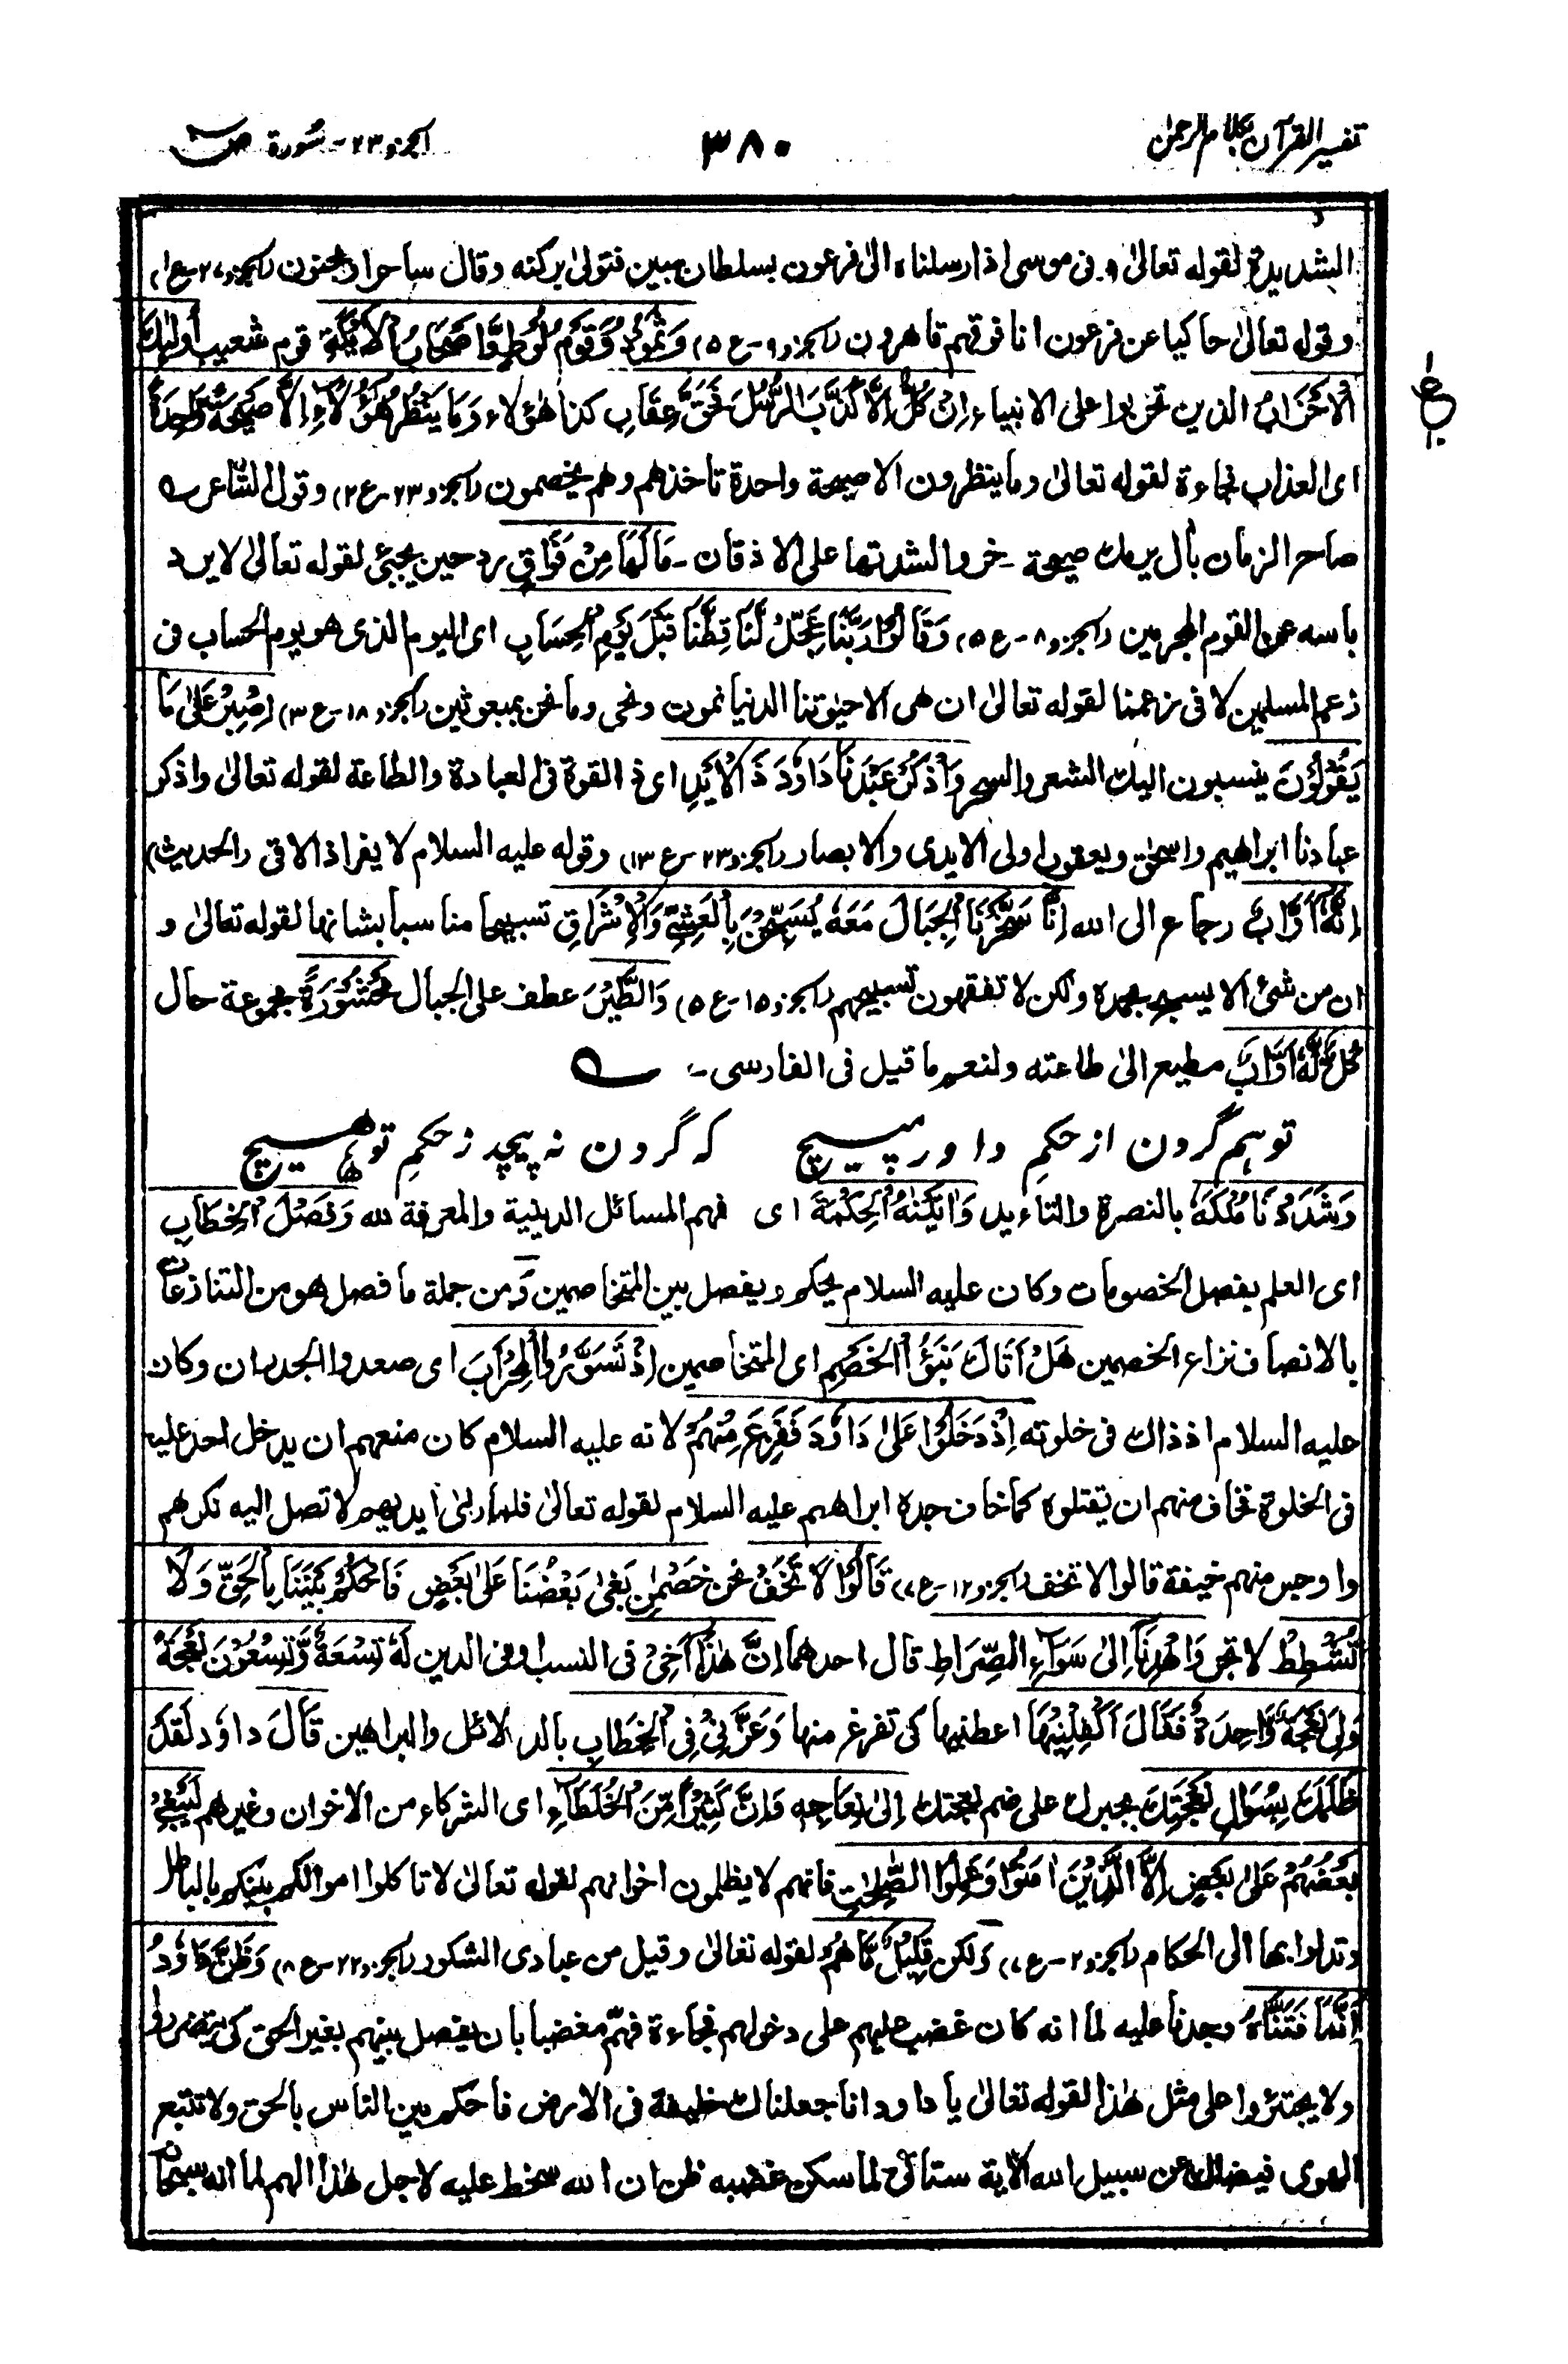 تفسير القرآن بكلام الرحمٰن
٣٨٠
الجزو ٢٣ - سُورة ص
الشديدة لقوله تعالىٰ و فى موسى اذ ارسلناه الىٰ فرعون بسلطان مبين فتولىٰ بركنه وقال ساحر او مجنون (الجزو ٢٧-ع١)
وقوله تعالىٰ حاكيا عن فرعون انا فوقهم قاهرون (الجزو ٩-ع٥) وَثَمُوْدُ وَقَوْمُ لُوْطٍ وَّاَصْحَابُ الْاَيْكَةِ قوم شعيب اُولٰئِكَ
الْاَحْزَابُ الذين تحزبوا على الانبياء اِنْ كُلٌّ اِلَّا كَذَّبَ الرُّسُلَ فَحَقَّ عِقَابِ كذا هٰؤلاء وَمَا يَنْظُرُ هٰؤُلَاءِ اِلَّا صَيْحَةً وَّاحِدَةً
اى العذاب فجاءة لقوله تعالىٰ وما ينظرون الا صيحة واحدة تاخذهم وهم يخصمون (الجزو ٢٣-ع٢) وقول الشاعر
صاح الزمان بآل برمك صيحة - خروا لشدتها على الاذقان - مَا لَهَا مِنْ فَوَاقٍ رد حين يجئى لقوله تعالىٰ لا يرد
باسه عن القوم المجرمين (الجزو ٨-ع٥) وَقَالُوْا رَبَّنَا عَجِّلْ لَّنَا قِطَّنَا قَبْلَ يَوْمِ الْحِسَابِ اى اليوم الذى هو يوم الحساب فى
زعم المسلمين لا فى زعمنا لقوله تعالىٰ ان هى الا حيٰوتنا الدنيا نموت ونحى وما نحن بمبعوثين (الجزو ١٨-ع٣) اِصْبِرْ عَلىٰ مَا
يَقُوْلُوْنَ ينسبون اليك الشعر والسحر وَاذْكُرْ عَبْدَنَا دَاوٗدَ ذَا الْاَيْدِ اى ذا القوة فى العبادة والطاعة لقوله تعالىٰ واذكر
عبادنا ابراهيم واسحٰق ويعقوب اولى الايدى والابصار (الجزو ٢٣-ع١٣) وقوله عليه السلام لا يفر اذا لاقى (الحديث)
اِنَّهٗ اَوَّابٌ رجاع الى الله اِنَّا سَخَّرْنَا الْجِبَالَ مَعَهٗ يُسَبِّحْنَ بِالْعَشِيِّ وَالْاِشْرَاقِ تسبيحا مناسبا بشانها لقوله تعالىٰ و
ان من شئ الا يسبح بحمده ولكن لا تفقهون تسبيحهم (الجزو ١٥-ع٥) وَالطَّيْرَ عطف على الجبال مَحْشُوْرَةً مجموعة حال
كُلٌّ لَّهٗ اَوَّابٌ مطيع الىٰ طاعته ولنعم ما قيل فى الفارسى -
تو ہم گردن از حکمِ داور مپیچ که گردن نه پیچد ز حکمِ تو هیچ
وَشَدَدْنَا مُلْكَهٗ بالنصرة والتاءييد وَاٰتَيْنٰهُ الْحِكْمَةَ اى فهم المسائل الدينية والمعرفة لله وَفَصْلَ الْخِطَابِ
اى العلم بفصل الخصومات وكان عليه السلام يحكم ويفصل بين المتخاصمين وَمن جملة ما فصل هو من التنازعات
بالانصاف نزاع الخصمين هَلْ اَتَاكَ نَبَؤُا الْخَصْمِ اى المتخاصمين اِذْ تَسَوَّرُوا الْمِحْرَابَ اى صعدوا الجدران وكان
عليه السلام اذ ذاك فى خلوته اِذْ دَخَلُوْا عَلىٰ دَاوٗدَ فَفَزِعَ مِنْهُمْ لانه عليه السلام كان منعهم ان يدخل احد عليه
فى الخلوة فخاف منهم ان يقتلوه كما خاف جده ابراهيم عليه السلام لقوله تعالىٰ فلما رأى ايديهم لا تصل اليه نكرهم
واوجس منهم خيفة قالوا لا تخف (الجزو ١٢-ع٧) قَالُوْا لَا تَخَفْ نحن خَصْمٰنِ بَغىٰ بَعْضُنَا عَلىٰ بَعْضٍ فَاحْكُمْ بَيْنَنَا بِالْحَقِّ وَلَا
تُشْطِطْ لا تجر وَاهْدِنَا اِلىٰ سَوَآءِ الصِّرَاطِ قال احدهما اِنَّ هٰذَا اَخِيْ فى النسب او فى الدين لَهٗ تِسْعَةٌ وَّتِسْعُوْنَ نَعْجَةً
وَّلِيَ نَعْجَةٌ وَّاحِدَةٌ فَقَالَ اَكْفِلْنِيْهَا اعطنيها كى تفرغ منها وَعَزَّنِيْ فِى الْخِطَابِ بالدلائل والبراهين قَالَ داوٗد لَقَدْ
ظَلَمَكَ بِسُؤَالِ نَعْجَتِكَ بجبرك على ضم نعجتك اِلىٰ نِعَاجِهٖ وَاِنَّ كَثِيْرًا مِّنَ الْخُلَطَآءِ اى الشركاء من الاخوان وغيرهم لَيَبْغِيْ
بَعْضُهُمْ عَلىٰ بَعْضٍ اِلَّا الَّذِيْنَ اٰمَنُوْا وَعَمِلُوا الصّٰلِحٰتِ فانهم لا يظلمون اخوانهم لقوله تعالىٰ لا تاكلوا اموالكم بينكم بالباطل
وتدلوا بها الى الحكام (الجزو ٢-ع٧) وَلكن قَلِيْلٌ مَّا هُمْ لقوله تعالىٰ وقيل من عبادى الشكور (الجزو ٢٢-ع٨) وَظَنَّ دَاوٗدُ
اَنَّمَا فَتَنَّاهُ وجدنا عليه لما انه كان غضب عليهم على دخولهم فجاءة فهمّ مغضبا بان يفصل بينهم بغير الحق كى
ولا يجترؤا على مثل هٰذا لقوله تعالىٰ يا داود انا جعلناك خليفة فى الارض فاحكم بين الناس بالحق ولا تتبع
الهوى فيضلك عن سبيل الله الآية ستأتى لما سكن غضبه ظن ان الله سخط عليه لاجل هٰذا الهم لما انه سبحانه